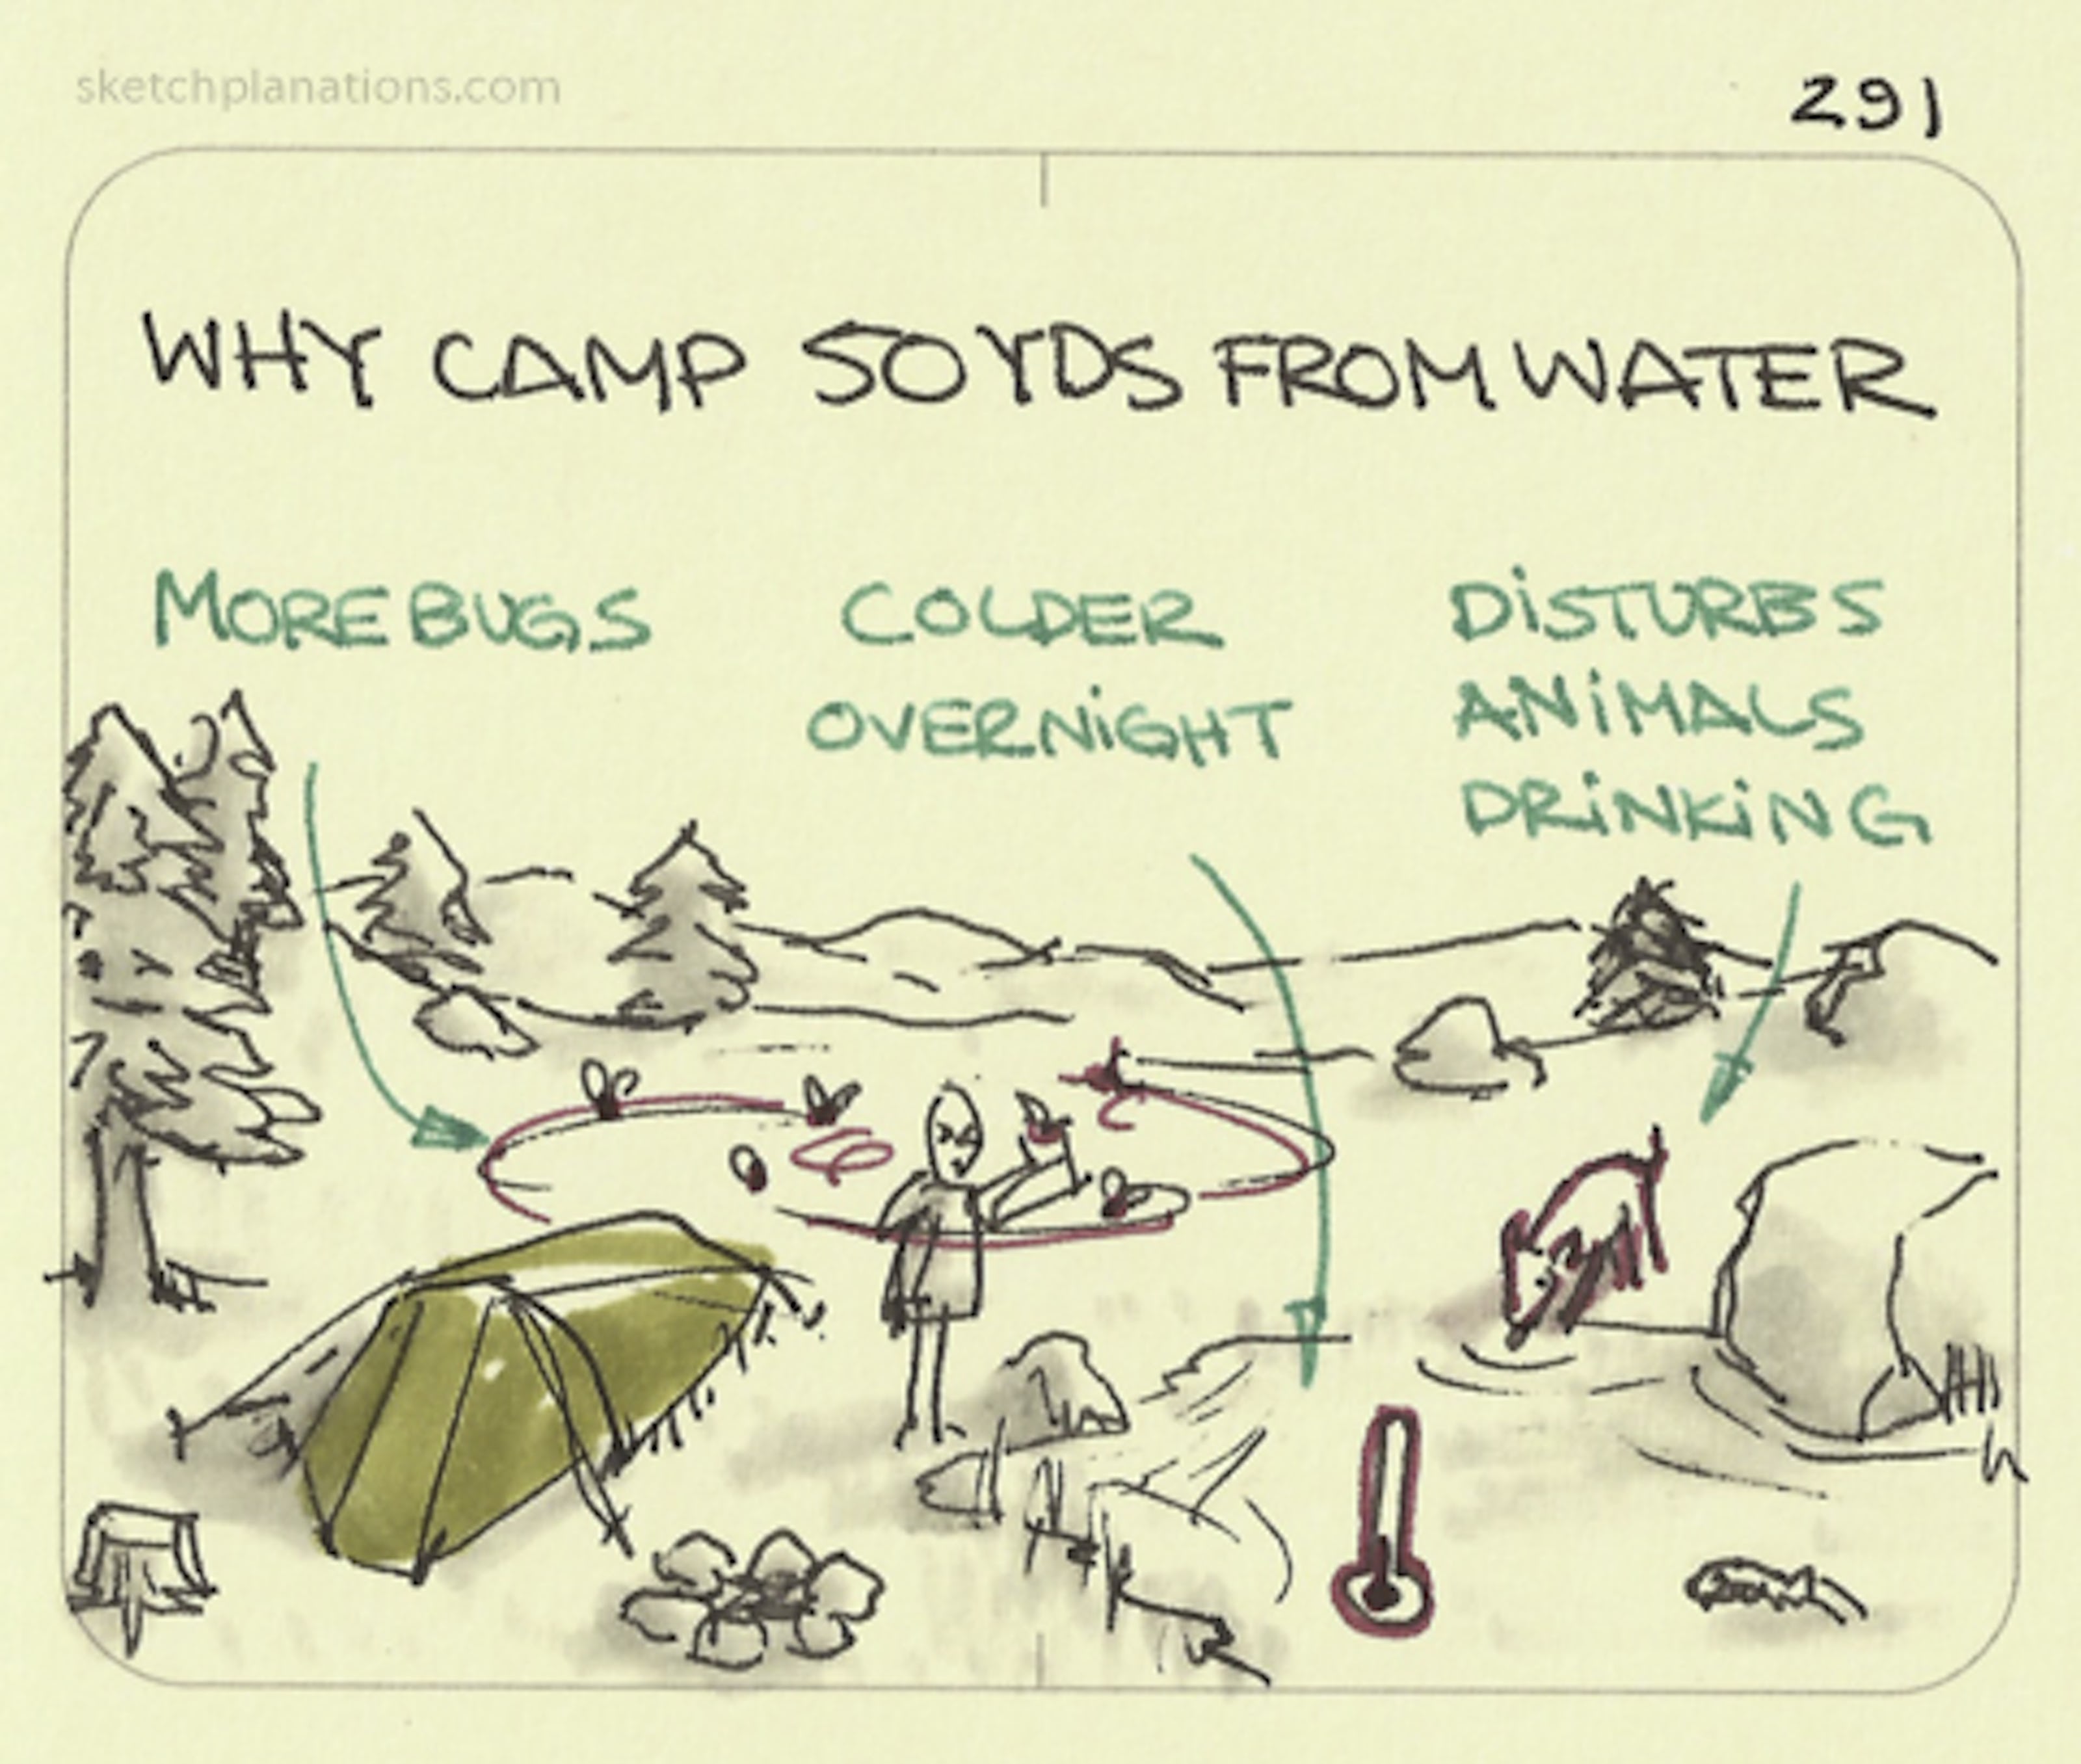 sketchplanations.com
291
WHY CAMP 50 YDS FROM WATER
MORE BUGS
COLDER
OVERNIGHT
DISTURBS
ANIMALS
DRINKING